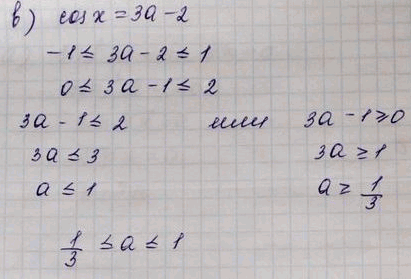 в) cos x = 3a - 2
-1 ≤ 3a - 2 ≤ 1
0 ≤ 3a - 1 ≤ 2
3a - 1 ≤ 2 или 3a - 1 ≥ 0
3a ≤ 3 3a ≥ 1
a ≤ 1 a ≥ 1/3
1/3 ≤ a ≤ 1